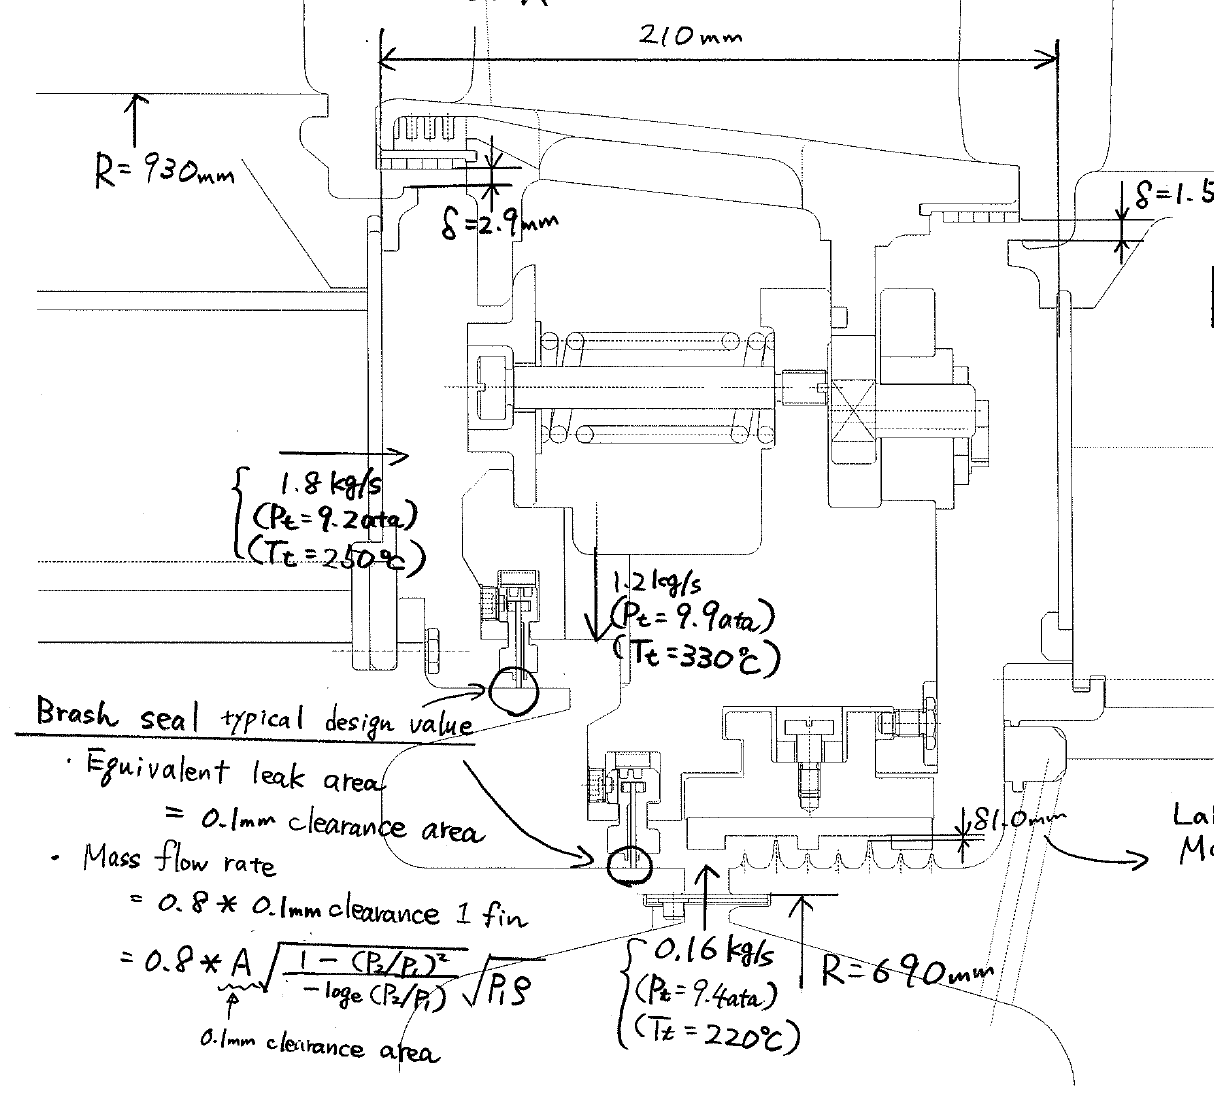 210mm
R=930mm
δ=2.9mm
δ=1.5
1.8 kg/s
(Pt=9.2ata)
(Tt=250℃)
1.2kg/s
(Pt=9.9ata)
(Tt=330℃)
Brash seal typical design value
・Equivalent leak area
= 0.1mm clearance area
・Mass flow rate
= 0.8 * 0.1mm clearance 1 fin
= 0.8 * A √(1-(P2/P1)²/-loge(P2/P1)) √P1ρ
0.1mm clearance area
δ1.0mm
0.16 kg/s
(Pt=9.4ata)
(Tt=220℃)
R=690mm